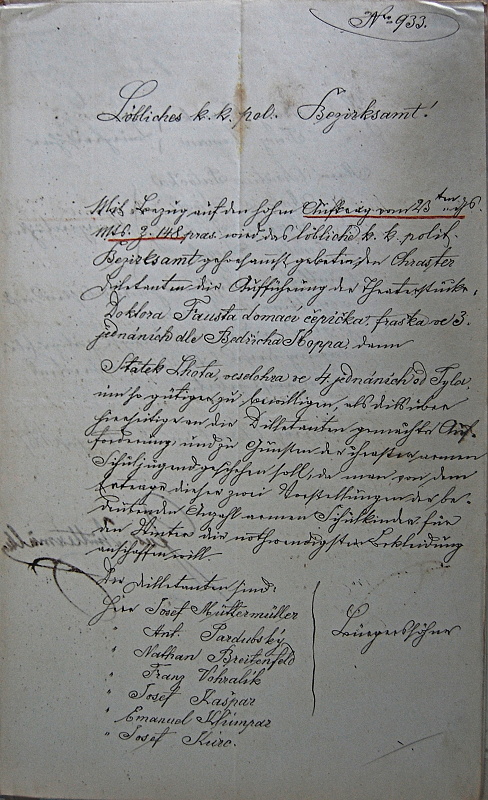 No 933.
Löbliches k. k. pol. Bezirksamt!
Mit Bezug auf den hohen Auftrag vom 23ten
Mts. Z. 148 pras. wird das löbliche k. k. polit.
Bezirksamt gehorsamst gebeten, den Chraster
Diletanten die Aufführung der Theaterstücke,
Doktora Fausta domácí čepička, fraška ve 3.
jednáních dle Bedřicha Hoppa, dann
Statek Lhota, veselohra ve 4. jednáních od Tyla,
um so gütiger zu bewilligen, als dies über
hierseitige an die Dilletanten gemachte Auf-
forderung und zu Gunsten der chraster armen
Schuljugend geschehen soll, da man von dem
Ertrage dieser zwei Vorstellungen der be-
deutenden Anzahl armen Schulkinder für
den Winter die nothwendigste Bekleidung
anschaffen will.
Die Dilletanten sind:
Herr Josef Müttermüller
" Ant. Pardubský
" Nathan Breitenfeld
" Franz Vohralik
" Josef Kašpar
" Emanuel Klimpar
" Josef Kürc.
Bürgersöhne